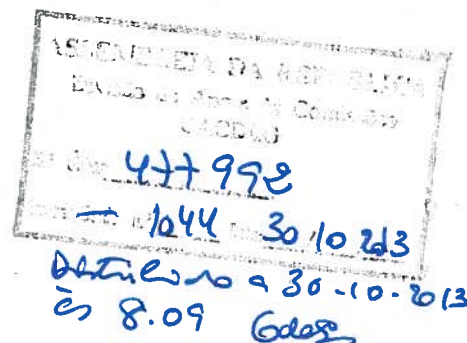 ASSEMBLEIA DA REPÚBLICA
Divisão de Apoio às Comissões
CACDLG
477992
— 1044 30 10 2013
Distribuído a 30-10-2013
às 8.09